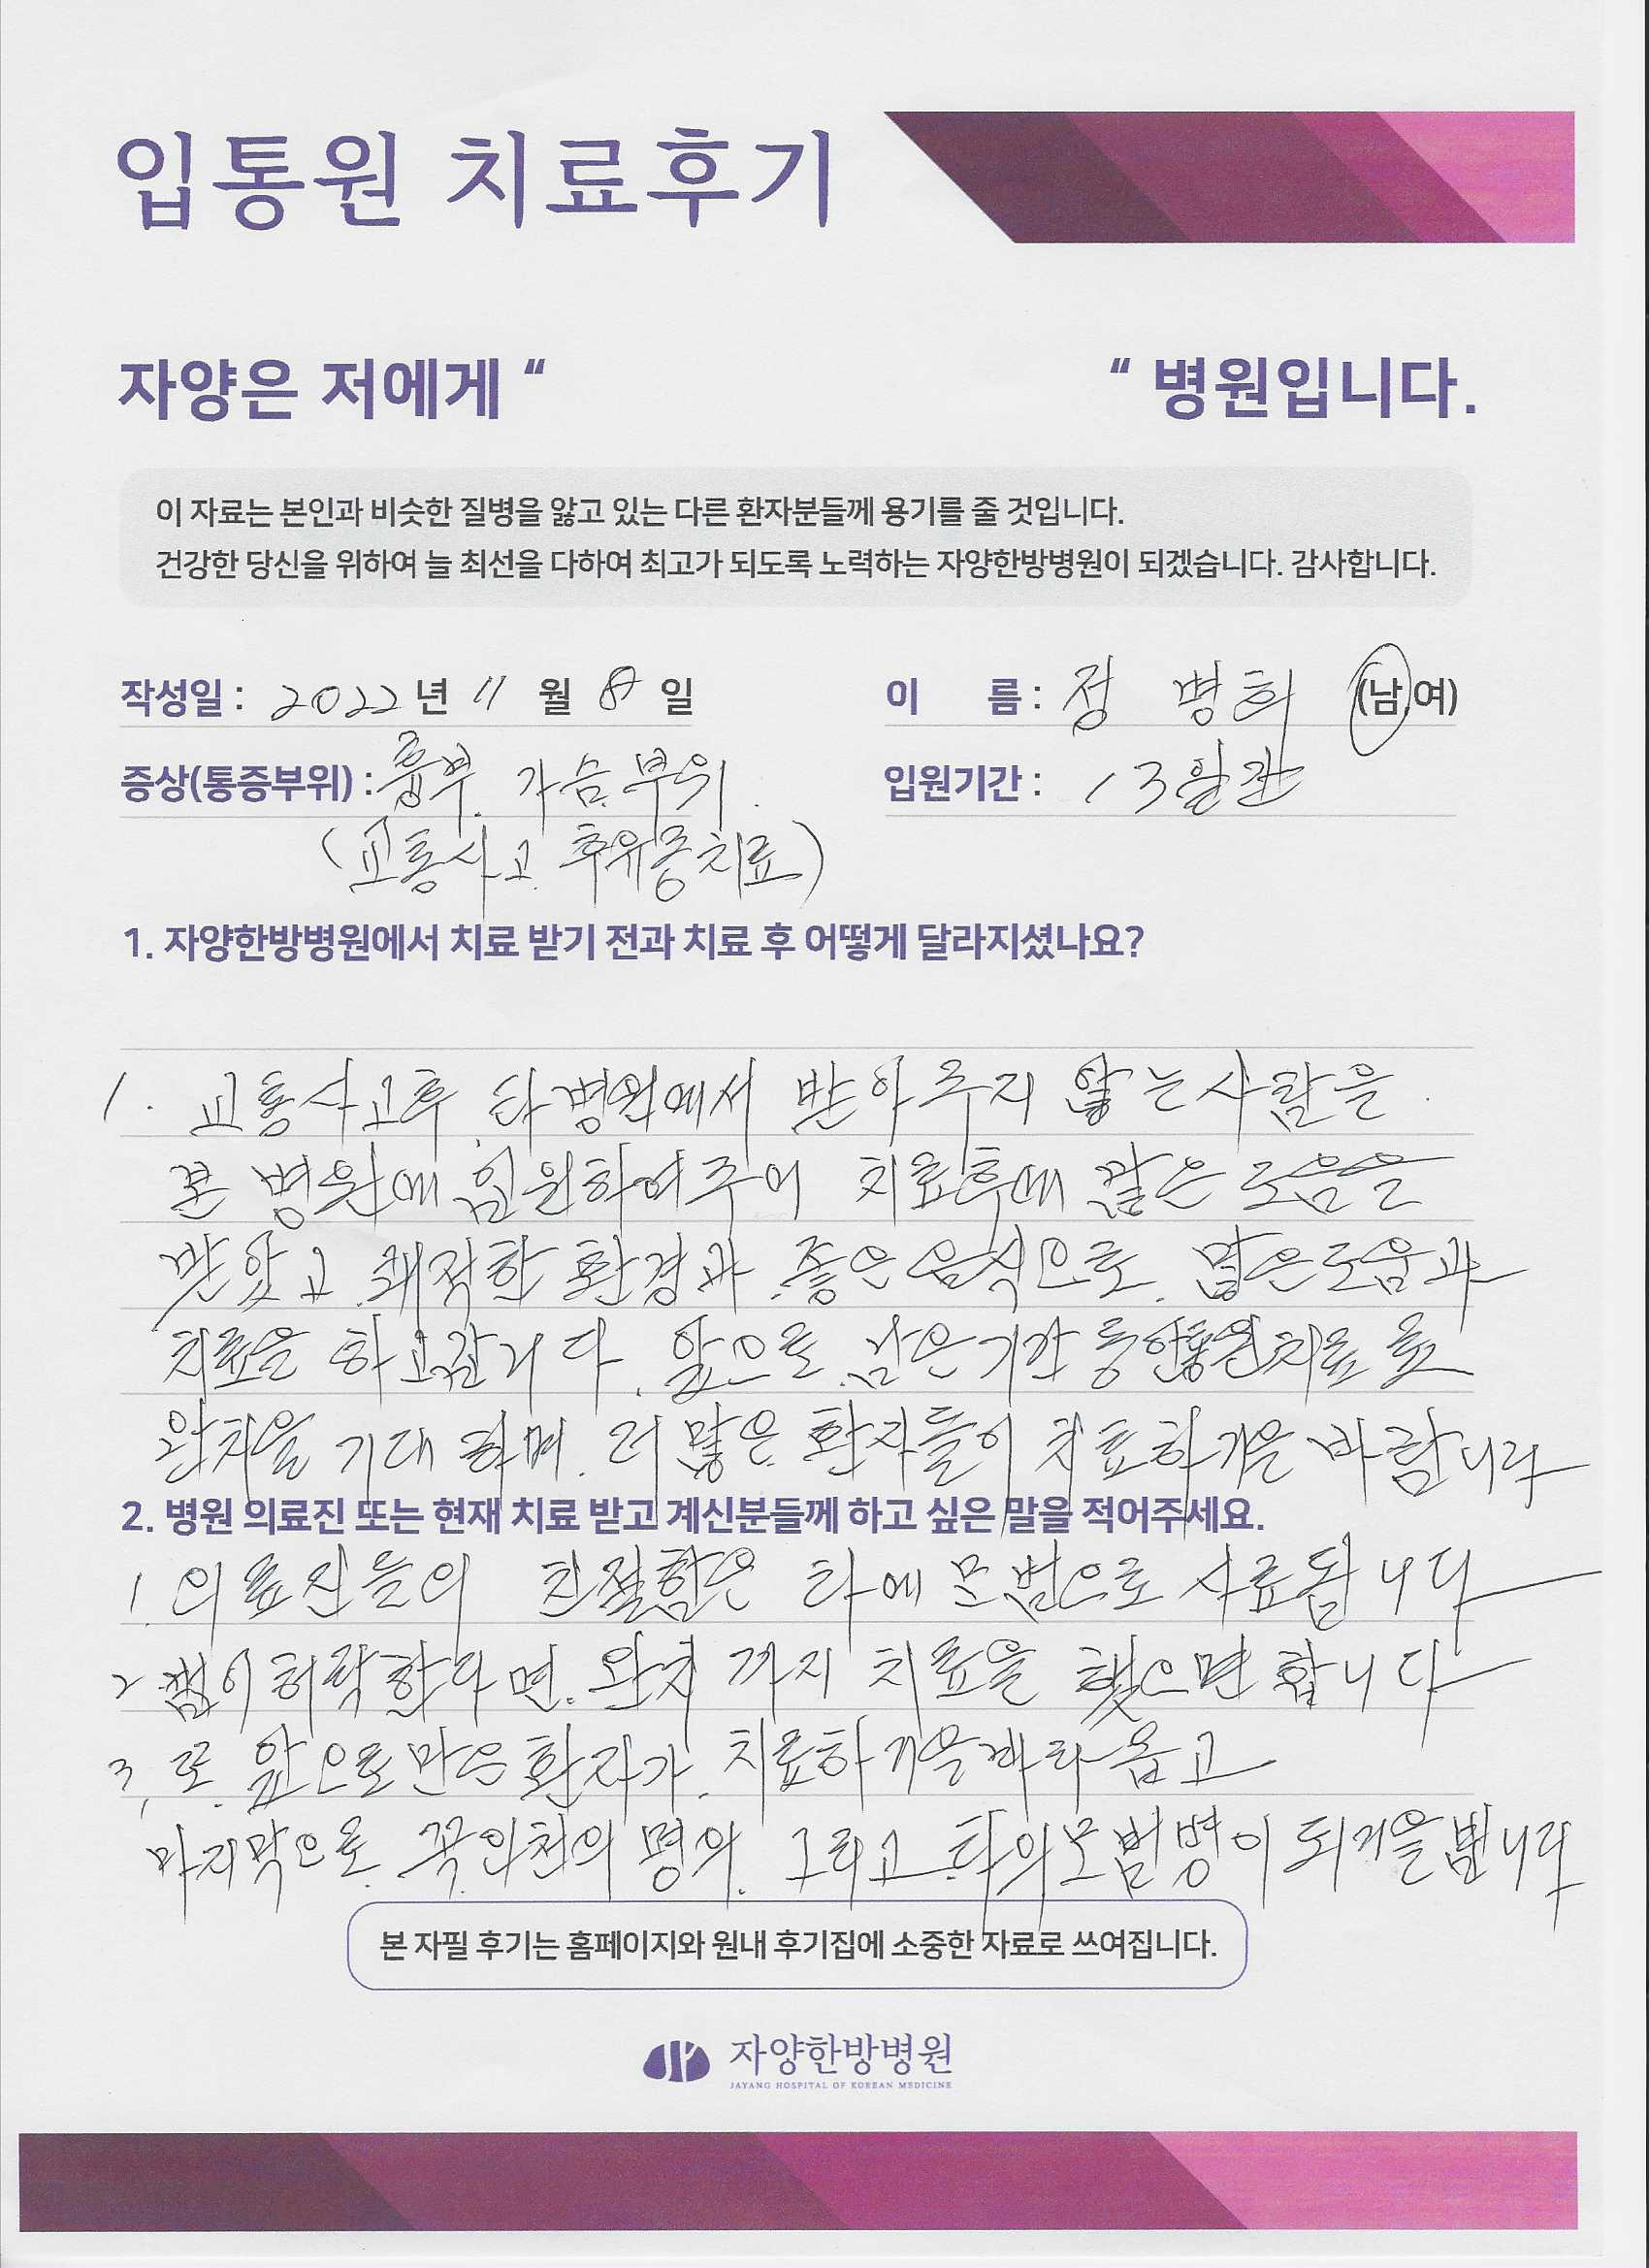 입통원 치료후기
자양은 저에게 “ “ 병원입니다.
이 자료는 본인과 비슷한 질병을 앓고 있는 다른 환자분들께 용기를 줄 것입니다.
건강한 당신을 위하여 늘 최선을 다하여 최고가 되도록 노력하는 자양한방병원이 되겠습니다. 감사합니다.
작성일 : 2022 년 11 월 8 일
이 름 : 정 병희 (남,여)
증상(통증부위) : 흉부. 가슴부위
입원기간 : 13일간
(교통사고 후유증치료)
1. 자양한방병원에서 치료 받기 전과 치료 후 어떻게 달라지셨나요?
1. 교통사고후 타병원에서 받아주지 않는사람을
본 병원에 입원하여주어 치료후에 많은 도움을
받았고 쾌적한 환경과 좋은음식으로 많은도움과
치료을 하고갑니다. 앞으로 남은기간 통원치료로
완치을 기대하며. 더 많은 환자들이 치료하기을 바랍니다
2. 병원 의료진 또는 현재 치료 받고 계신분들께 하고 싶은 말을 적어주세요.
1. 의료진들의 친절함은 타에 모범으로 사료됩니다
2. 허락한다면. 완치까지 치료을 했으면 합니다
3. 또. 앞으로 만은환자가. 치료하기을바라옵고
마지막으로. 꼭인천의 명의. 그리고 타의모범병이 되기을빕니다
본 자필 후기는 홈페이지와 원내 후기집에 소중한 자료로 쓰여집니다.
자양한방병원
JAYANG HOSPITAL OF KOREAN MEDICINE